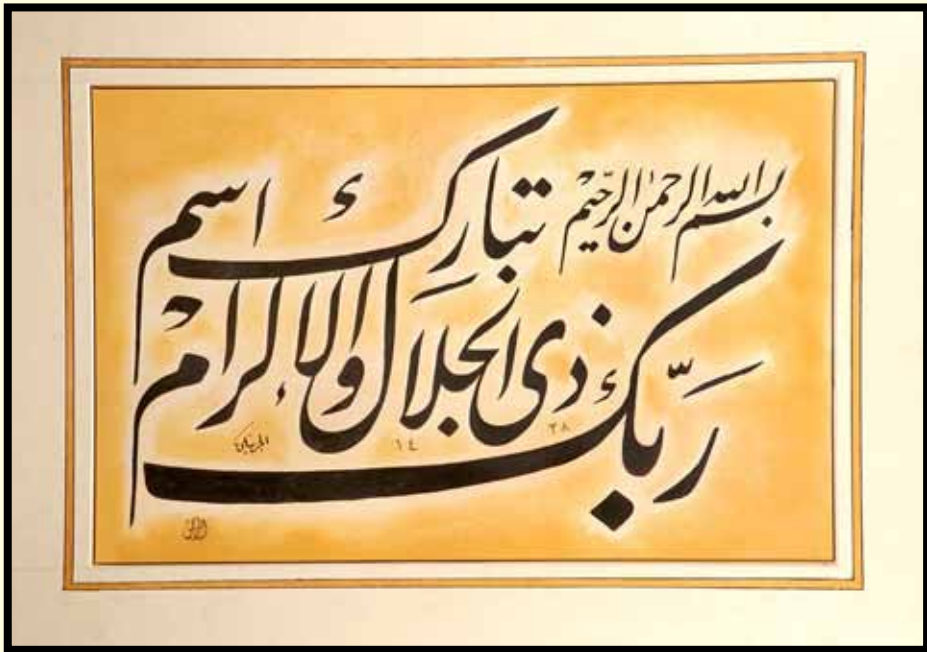 بسم الله الرحمن الرحيم
تبارك اسم
ربك ذى الجلال والاكرام
١٤ ٢٨